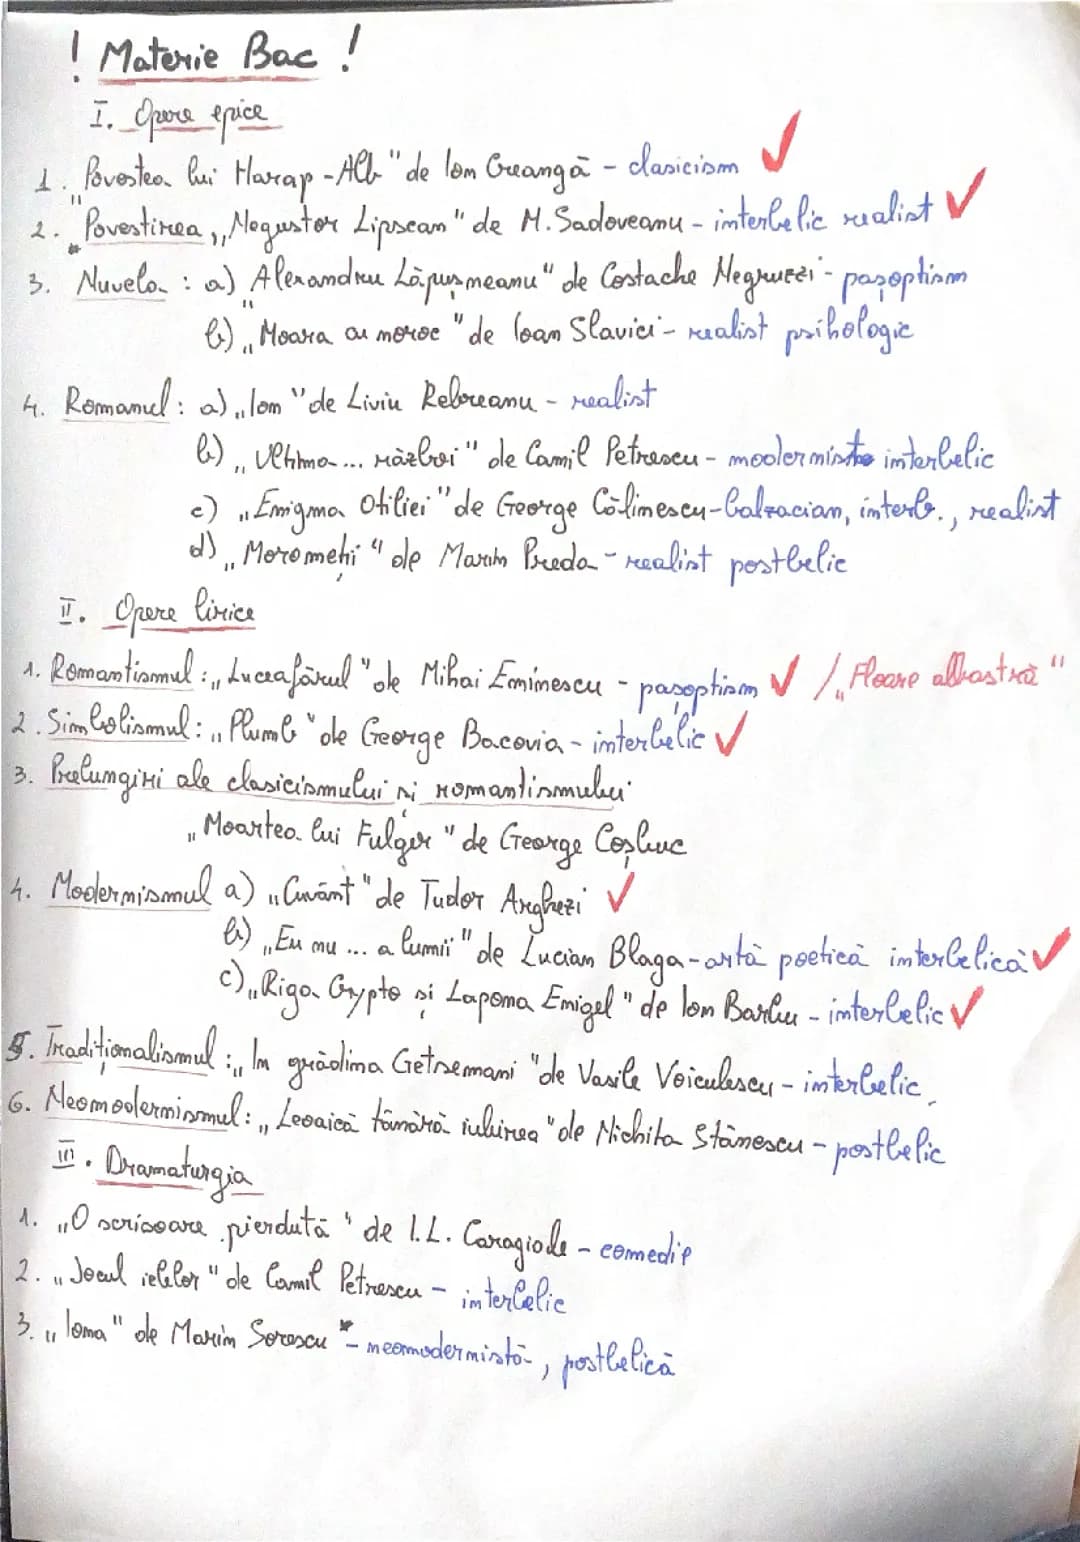 ! Materie Bac !
I. Opere epice
1. „Povestea lui Harap-Alb" de Ion Creangă - clasicism ✓
2. Povestirea „Negustor Lipscan" de M. Sadoveanu - interbelic realist ✓
3. Nuvela : a) „Alexandru Lăpușneanu" de Costache Negruzzi - pașoptism
b) „Moara cu noroc" de Ioan Slavici - realist psihologic
4. Romanul : a) „Ion" de Liviu Rebreanu - realist
b) „Ultima... război" de Camil Petrescu - modernist interbelic
c) „Enigma Otiliei" de George Călinescu - balzacian, interb., realist
d) „Moromeții" de Marin Preda - realist postbelic
II. Opere lirice
1. Romantismul : „Luceafărul" de Mihai Eminescu - pașoptism ✓ / „Floare albastră"
2. Simbolismul : „Plumb" de George Bacovia - interbelic ✓
3. Prelungiri ale clasicismului si romantismului
„Moartea lui Fulger" de George Coșbuc
4. Modernismul a) „Cuvânt" de Tudor Arghezi ✓
b) „Eu nu ... a lumii" de Lucian Blaga - artă poetică interbelică ✓
c) „Riga Crypto și Lapona Enigel" de Ion Barbu - interbelic ✓
5. Tradiționalismul : „In grădina Getsemani" de Vasile Voiculescu - interbelic
6. Neomodernismul : „Leoaică tânără iubirea" de Nichita Stănescu - postbelic
III. Dramaturgia
1. „O scrisoare pierdută" de I.L. Caragiale - comedie
2. „Jocul ielelor" de Camil Petrescu - interbelic
3. „Iona" de Marin Sorescu * - neomodernistă, postbelică